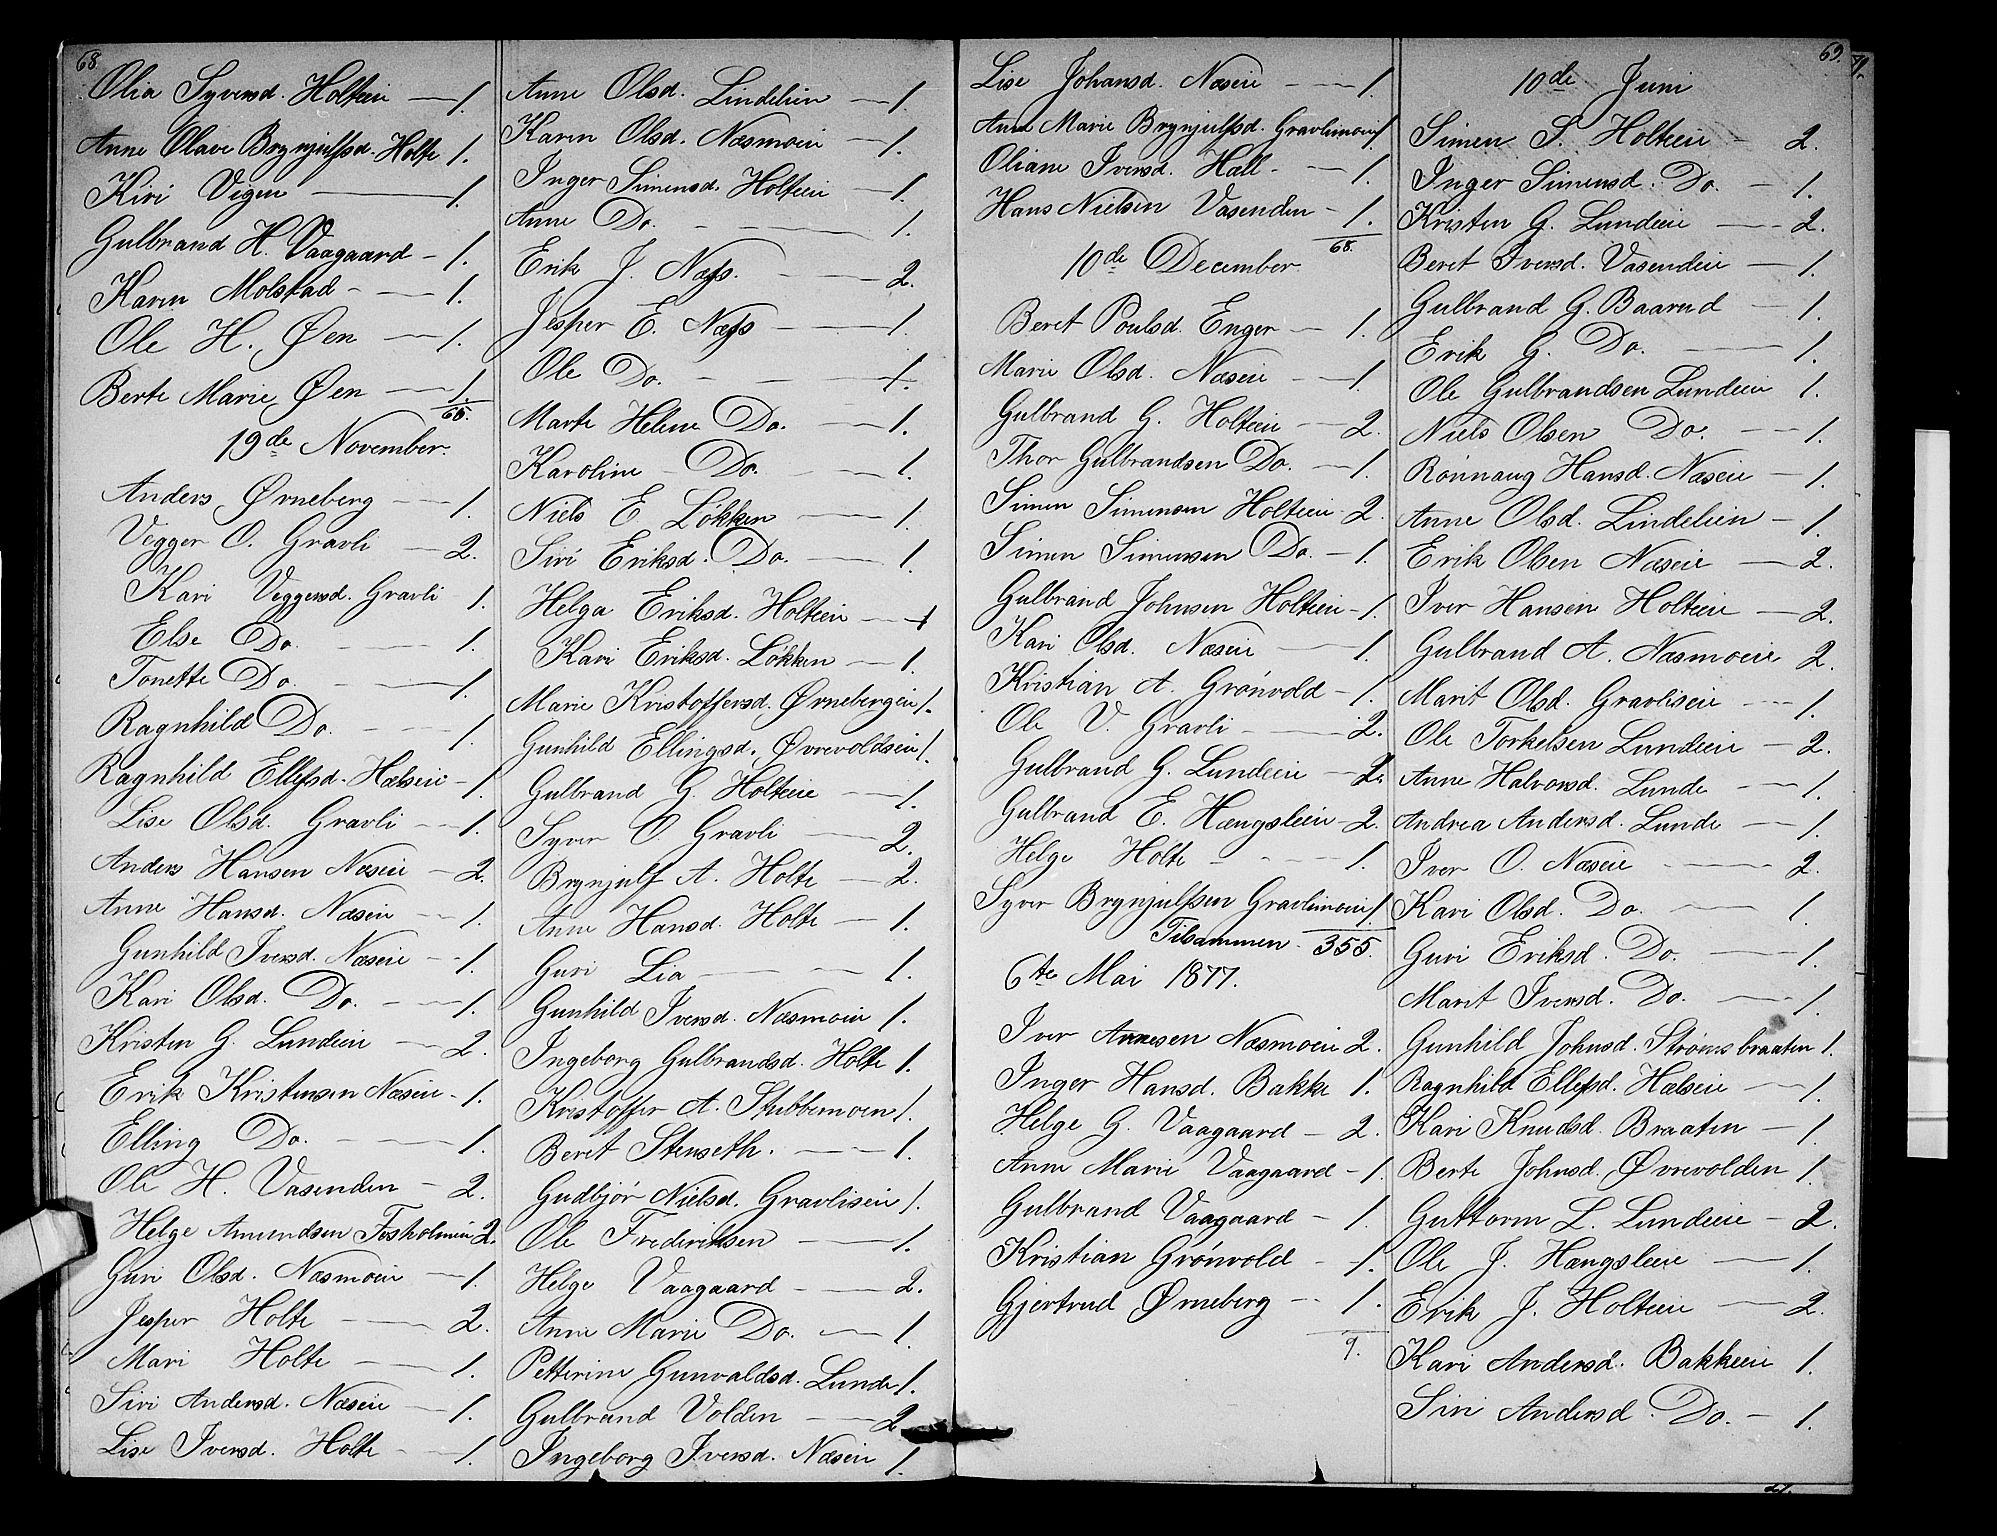 68.
Olia Syversd. Holteie — 1.
Anne Olave Brynjulfsd. Holte 1.
Kiri Vigen — 1.
Gulbrand H. Vaagaard - 1.
Karen Molstad - — 1.
Ole H. Øen — 1.
Berte Marie Øen — 1.
65.
19de November.
Anders Ørneberg — 1.
Vegger O. Gravli — 2.
Kari Veggersd. Gravli - 1.
Else Do. — 1.
Tonette Do. — 1.
Ragnhild Do. — 1.
Ragnhild Ellefsd. Hælseie - 1.
Lise Olsd. Gravli — 1.
Anders Hansen Næseie - 2.
Anne Hansd. Næseie - 1.
Gunhild Iversd. Næseie - 1.
Kari Olsd. Do. — 1.
Kristen G. Lundeie — 2.
Erik Kristensen Næseie - 1.
Elling Do. — 1.
Ole H. Vasenden - 2.
Helge Amundsen Fosholmeie 2.
Guri Olsd. Næsmoeie — 1.
Jesper Holte — 2.
Mari Holte — 1.
Siri Andersd. Næseie — 1.
Lise Iversd. Holte — 1.
Anne Olsd. Lindelien — 1.
Karen Olsd. Næsmoeie — 1.
Inger Simensd. Holteie — 1.
Anne Do. — 1.
Erik J. Næss. — 2.
Jesper E. Næss — 1.
Ole Do. — 1.
Marte Helene Do. — 1.
Karoline - Do. — 1.
Niels E Løkken — 1.
Siri Eriksd. Do. — 1.
Helga Eriksd. Holteie — 1
Kari Eriksd. Løkken — 1.
Marie Kristoffersd. Ørnebergeie 1.
Gunhild Ellingsd. Øvrevoldseie 1.
Gulbrand G. Holteie — 1.
Syver O Gravli — 2.
Brynjulf A. Holte — 2.
Anne Hansd. Holte — 1.
Guri Lia — 1.
Gunhild Iversd. Næsmoeie 1.
Ingeborg Gulbrandsd. Holte 1.
Kristoffer A. Stubbemoen 1.
Beret Stenseth. — 1.
Gudbjør Nielsd. Gravliseie 1.
Ole Frederiksen — 1.
Helge Vaagaard — 2.
Anne Marie Do. — 1.
Petterine Gunvaldsd. Lunde 1.
Gulbrand Volden — 2.
Ingeborg Iversd. Næseie 1.
Lise Johansd. Næseie - — 1.
Anne Marie Brynjulfsd. Gravlimoeie 1.
Oliane Iversd. Hall - — 1.
Hans Nielsen Vasenden - 1.
68.
10de December.
Beret Poulsd. Enger - 1.
Marie Olsd. Næseie — 1.
Gulbrand G. Holteie — 2.
Thor Gulbrandsen Do. — 1.
Simen Simensen Holteie 2.
Simen Simensen Do. — 1.
Gulbrand Johnsen Holteie - 1.
Kari Olsd. Næseie — 1.
Kristian A. Grønvold - 1.
Ole V. Gravli — 2.
Gulbrand G. Lundeie — 2.
Gulbrand E. Hængsleeie - 2.
Helge Holte - — 1.
Syver Brynjulfsen Gravlimoeie 1.
Tilsammen - 355.
6te Mai 1877.
Iver Arnesen Næsmoeie 2.
Inger Hansd. Bakke 1.
Helge G. Vaagaard — 2.
Anne Marie Vaagaard - 1.
Gulbrand Vaagaard - 1.
Kristian Grønvold - 1.
Gjertrud Ørneberg - 1.
9.
69.
10de Juni
Simen S. Holteie - 2.
Inger Simensd. Do. - 1.
Kristen G. Lundeie — 2.
Beret Iversd. Vasendeie — 1.
Gulbrand G. Baarud — 1.
Erik G. Do. — 1.
Ole Gulbrandsen Lundeie 1.
Niels Olsen Do. — 1.
Rønnaug Hansd. Næseie — 1.
Anne Olsd. Lindelien - 1.
Erik Olsen Næseie — 2.
Iver Hansen Holteie — 2.
Gulbrand A. Næsmoeie 2.
Marit Olsd. Gravliseie — 1.
Ole Torkelsen Lundeie — 2.
Anne Halvorsd. Lunde — 1.
Andrea Andersd. Lunde — 1.
Iver O. Næseie — 2.
Kari Olsd. Do. — 1.
Guri Eriksd. Do. — 1.
Marit Iversd. Do. — 1.
Gunhild Johnsd. Strømsbraaten 1.
Ragnhild Ellefsd. Hælseie — 1.
Kari Knudsd. Braaten — 1.
Berte Johnsd. Øvrevolden 1.
Guttorm L. Lundeie - 2.
Ole J. Hængsleeie — 1.
Erik J. Holteie — 2.
Kari Andersd. Bakkeeie 1.
Siri Andersd. Do. - 1.